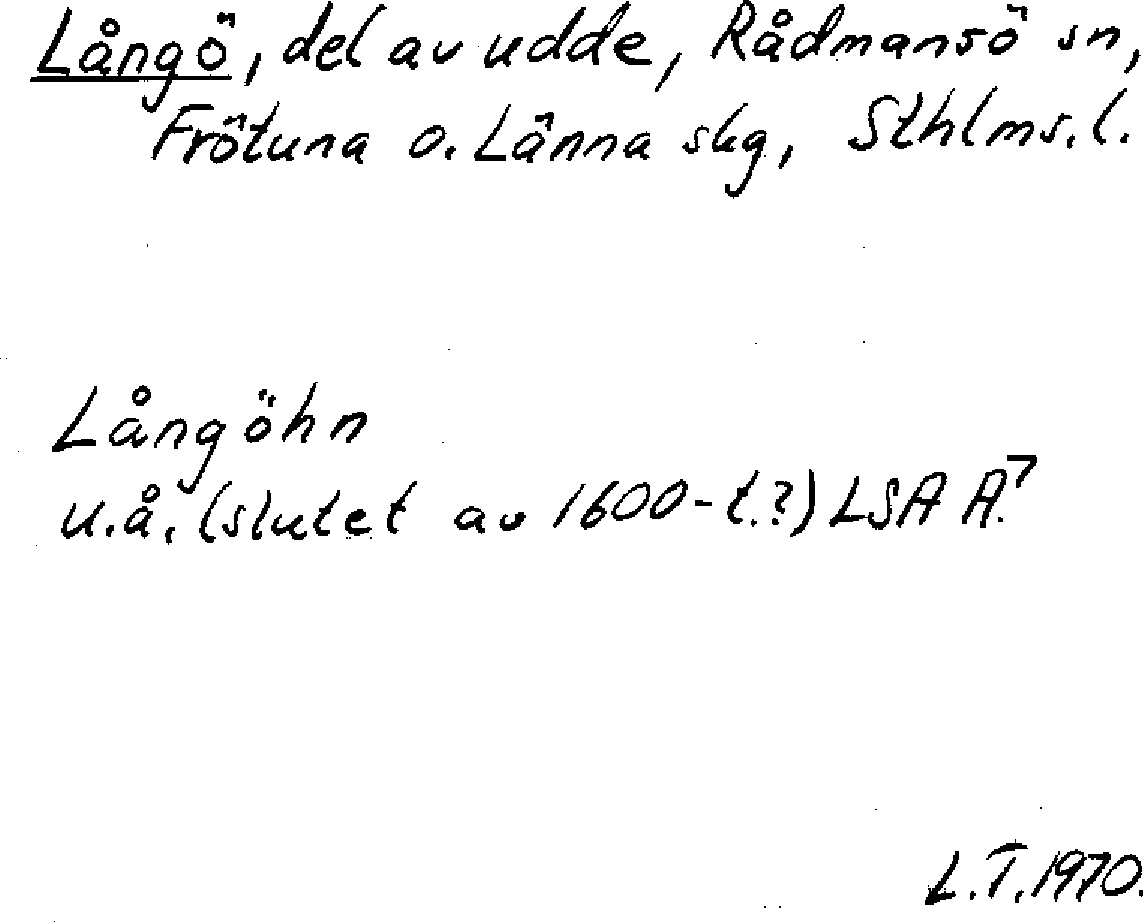 Långö, del av udde, Rådmansö sn,
Frötuna o. Länna skg, Sthlms. l.
Långöhn
u.å. (slutet av 1600-t.?) LSA A⁷
L.T. 1970.